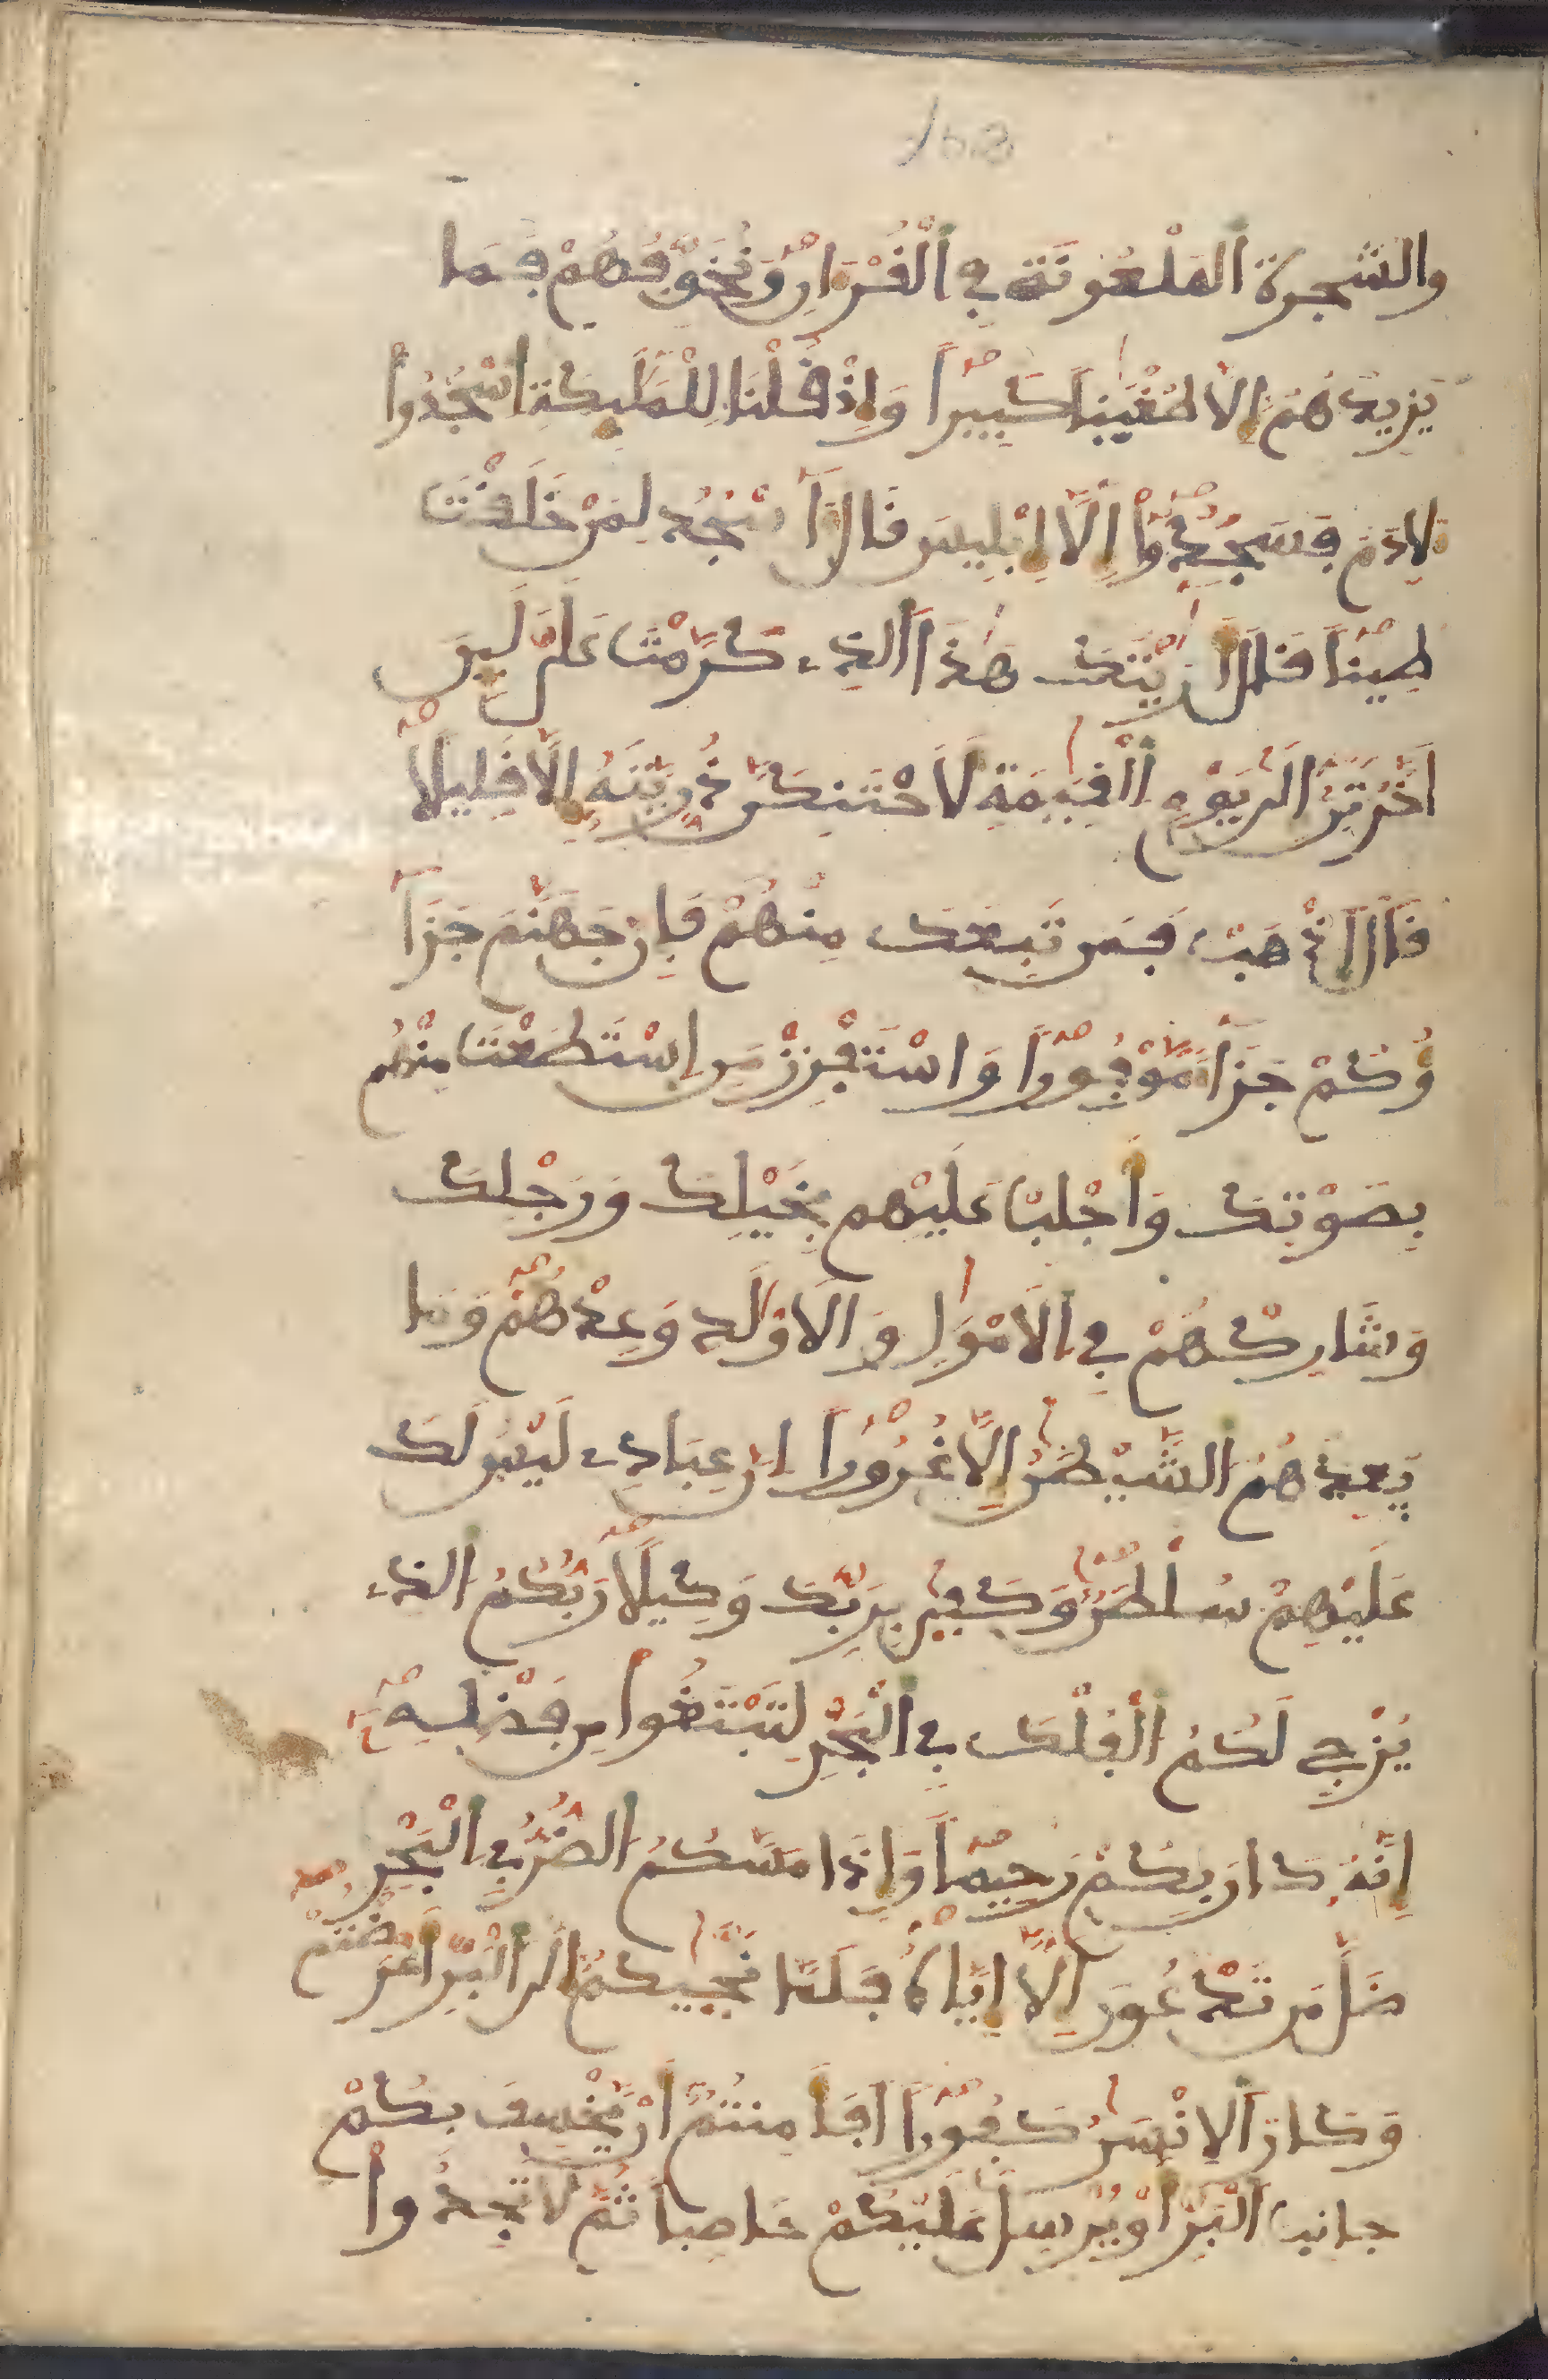 168
والشجرة ألْمَلْعُونَة فِي ألْفُرْءَانِ وَنُخَوِّفُهُمْ فَمَا
يَزِيدُهُمُ إِلَّا طُغْيَٰناً كَبِيراً وَإِذْ فُلْنَا لِلْمَلَٰٓئِكَةِ اسْجُدُواْ
ءلِادَمَ فَسَجَدُوٓاْ إِلَّآ إِبْلِيسَ فَالَ ءَآسْجُدُ لِمَنْ خَلَفْتَ
طِيناً فَالَ أَرَٰيْتَكَ هَٰذَا ألذِے كَرَّمْتَ عَلَيَّ لَيِنَ
اَخَّرْتَنِ إِلَىٰ يَوْمِ ألْفِيَٰمَةِ لَأَحْتَنِكَنَّ ذُرِّيَّتَهُ إِلَّا فَلِيلًا
فَالَ اَذْهَبْ فَمَن تَبِعَكَ مِنْهُمْ فَإِنَّ جَهَنَّمَ جَزَآ
ؤُكُمْ جَزَآءً مَّوْفُوراً وَاسْتَفْزِزْ مَنِ اِسْتَطَعْتَ مِنْهُم
بِصَوْتِكَ وَأَجْلِبْ عَلَيْهِم بِخَيْلِكَ وَرَجْلِكَ
وَشَارِكْهُمْ فِي الَامْوَٰلِ وَالَاوْلَٰدِ وَعِدْهُمْ وَمَا
يَعِدُهُمُ الشَّيْطَٰنُ إِلَّا غُرُوراً اِنَّ عِبَادِے لَيْسَ لَكَ
عَلَيْهِمْ سُلْطَٰنٌ وَكَفَىٰ بِرَبِّكَ وَكِيلًا رَّبُّكُمُ الذِے
يُزْجِي لَكُمُ ألْفُلْكَ فِي ألْبَحْرِ لِتَبْتَغُواْ مِن فَضْلِهِ
إِنَّهُ كَانَ بِكُمْ رَحِيماً وَإِذَا مَسَّكُمُ ألضُّرُّ فِي ألْبَحْرِ
ضَلَّ مَن تَدْعُونَ إِلَّآ إِيَّاهُ فَلَمَّا نَجَّيٰكُمُ إِلَى ألْبَرِّ أَعْرَضْتُمْ
وَكَانَ ألِانْسَٰنُ كَفُوراً اَفَأَمِنتُمُ أَنْ يَّخْسِفَ بِكُمْ
جانب ألْبَرِّ أَوْ يُرْسِلَ عَلَيْكُمْ حَاصِباً ثُمَّ لَا تَجِدُواْ